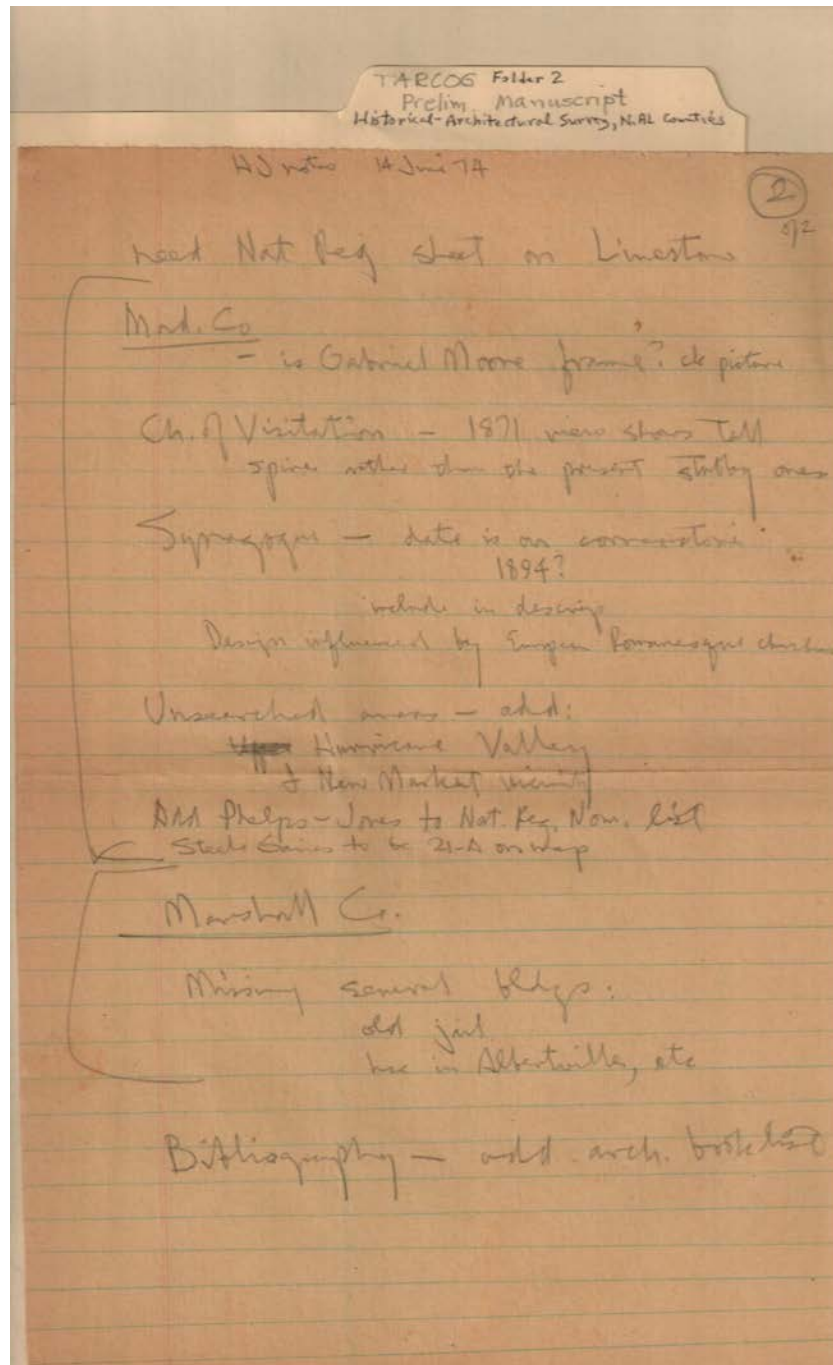 TARCOG Folder 2
Prelim Manuscript
Historical-Architectural Survey, N.AL Counties
HJ notes 14 June 74
2
of 2
need Nat Reg sheet on Limestone
Mad. Co
- is Gabriel Moore frame? ck picture
Ch. of Visitation - 1871 view shows tall
spires rather than the present stubby ones
Synagogue - date is on cornerstone
1894?
include in descrip
Design influenced by European Romanesque churches
Unsearched areas - add:
Hurricane Valley
& New Market vicinity
Add Phelps-Jones to Nat. Reg. Nom. list
Steele Gaines to be 21-A on map
Marshall Co.
Missing several bldgs:
old jail
hse in Albertville, etc
Bibliography - add arch. book list